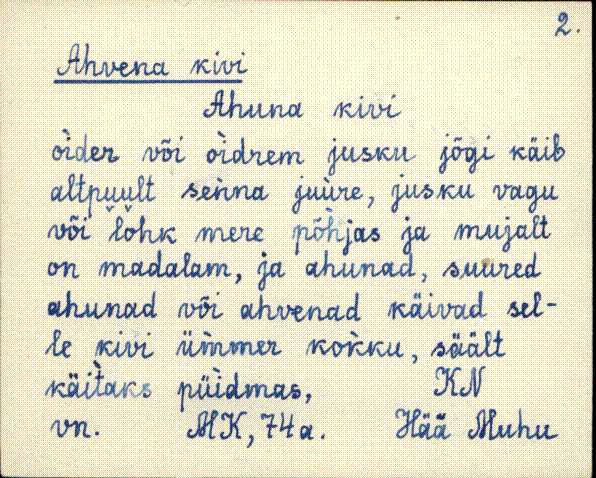 2.
Ahvena kivi
Ahuna kivi
òider või òidrem jusku jõgi käib
altpuult seǹna juùre, jusku vagu
või lõhk mere põh̀jas ja mujalt
on madalam, ja ahunad, suured
ahunad või ahvenad käivad sel-
le kivi üm̀mer kok̀ku, säält
käit̀aks püidmas, KN
vn. MK, 74a. Hää Muhu